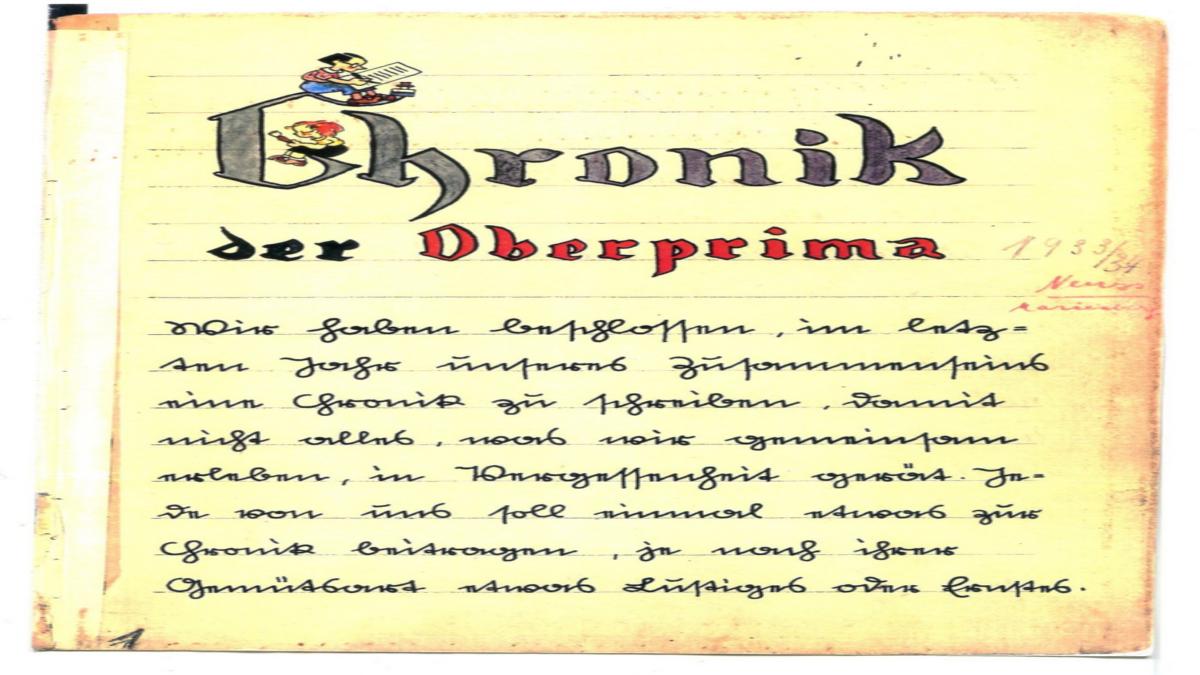 Chronik
der Oberprima
1933/34
Neuss
Marienberg
Wir haben beschlossen, im letz=
ten Jahr unseres Zusammenseins
eine Chronik zu schreiben, damit
nicht alles, was wir gemeinsam
erleben, in Vergessenheit gerät. Je=
de von uns soll einmal etwas zur
Chronik beitragen, je nach ihrer
Gemütsart etwas Lustiges oder Ernstes.
1